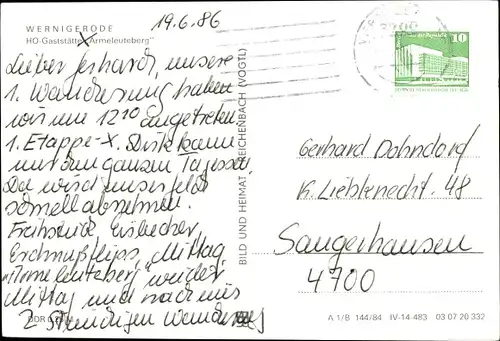 WERNIGERODE
HO-Gaststätte "Armeleuteberg"
19.6.86
Lieber Gerhard, unsere
1. Wanderung haben
wir um 12 10 angetreten.
1. Etappe - X. Dirk kam
mit den ganzen Tages
Da wird unser Geld
schnell abnehmen.
Frühstück, Eisbecher,
Erdnußflips, Mittag,
"Armeleuteberg" wieder
Mittag und nach uns
2 Stündigen Wanderung
DDR
BILD UND HEIMAT REICHENBACH (VOGTL)
10
Gerhard Dohndorf
K. Liebknecht. 48
Sangerhausen
4700
A 1/B 144/84 IV-14-483 03 07 20 332